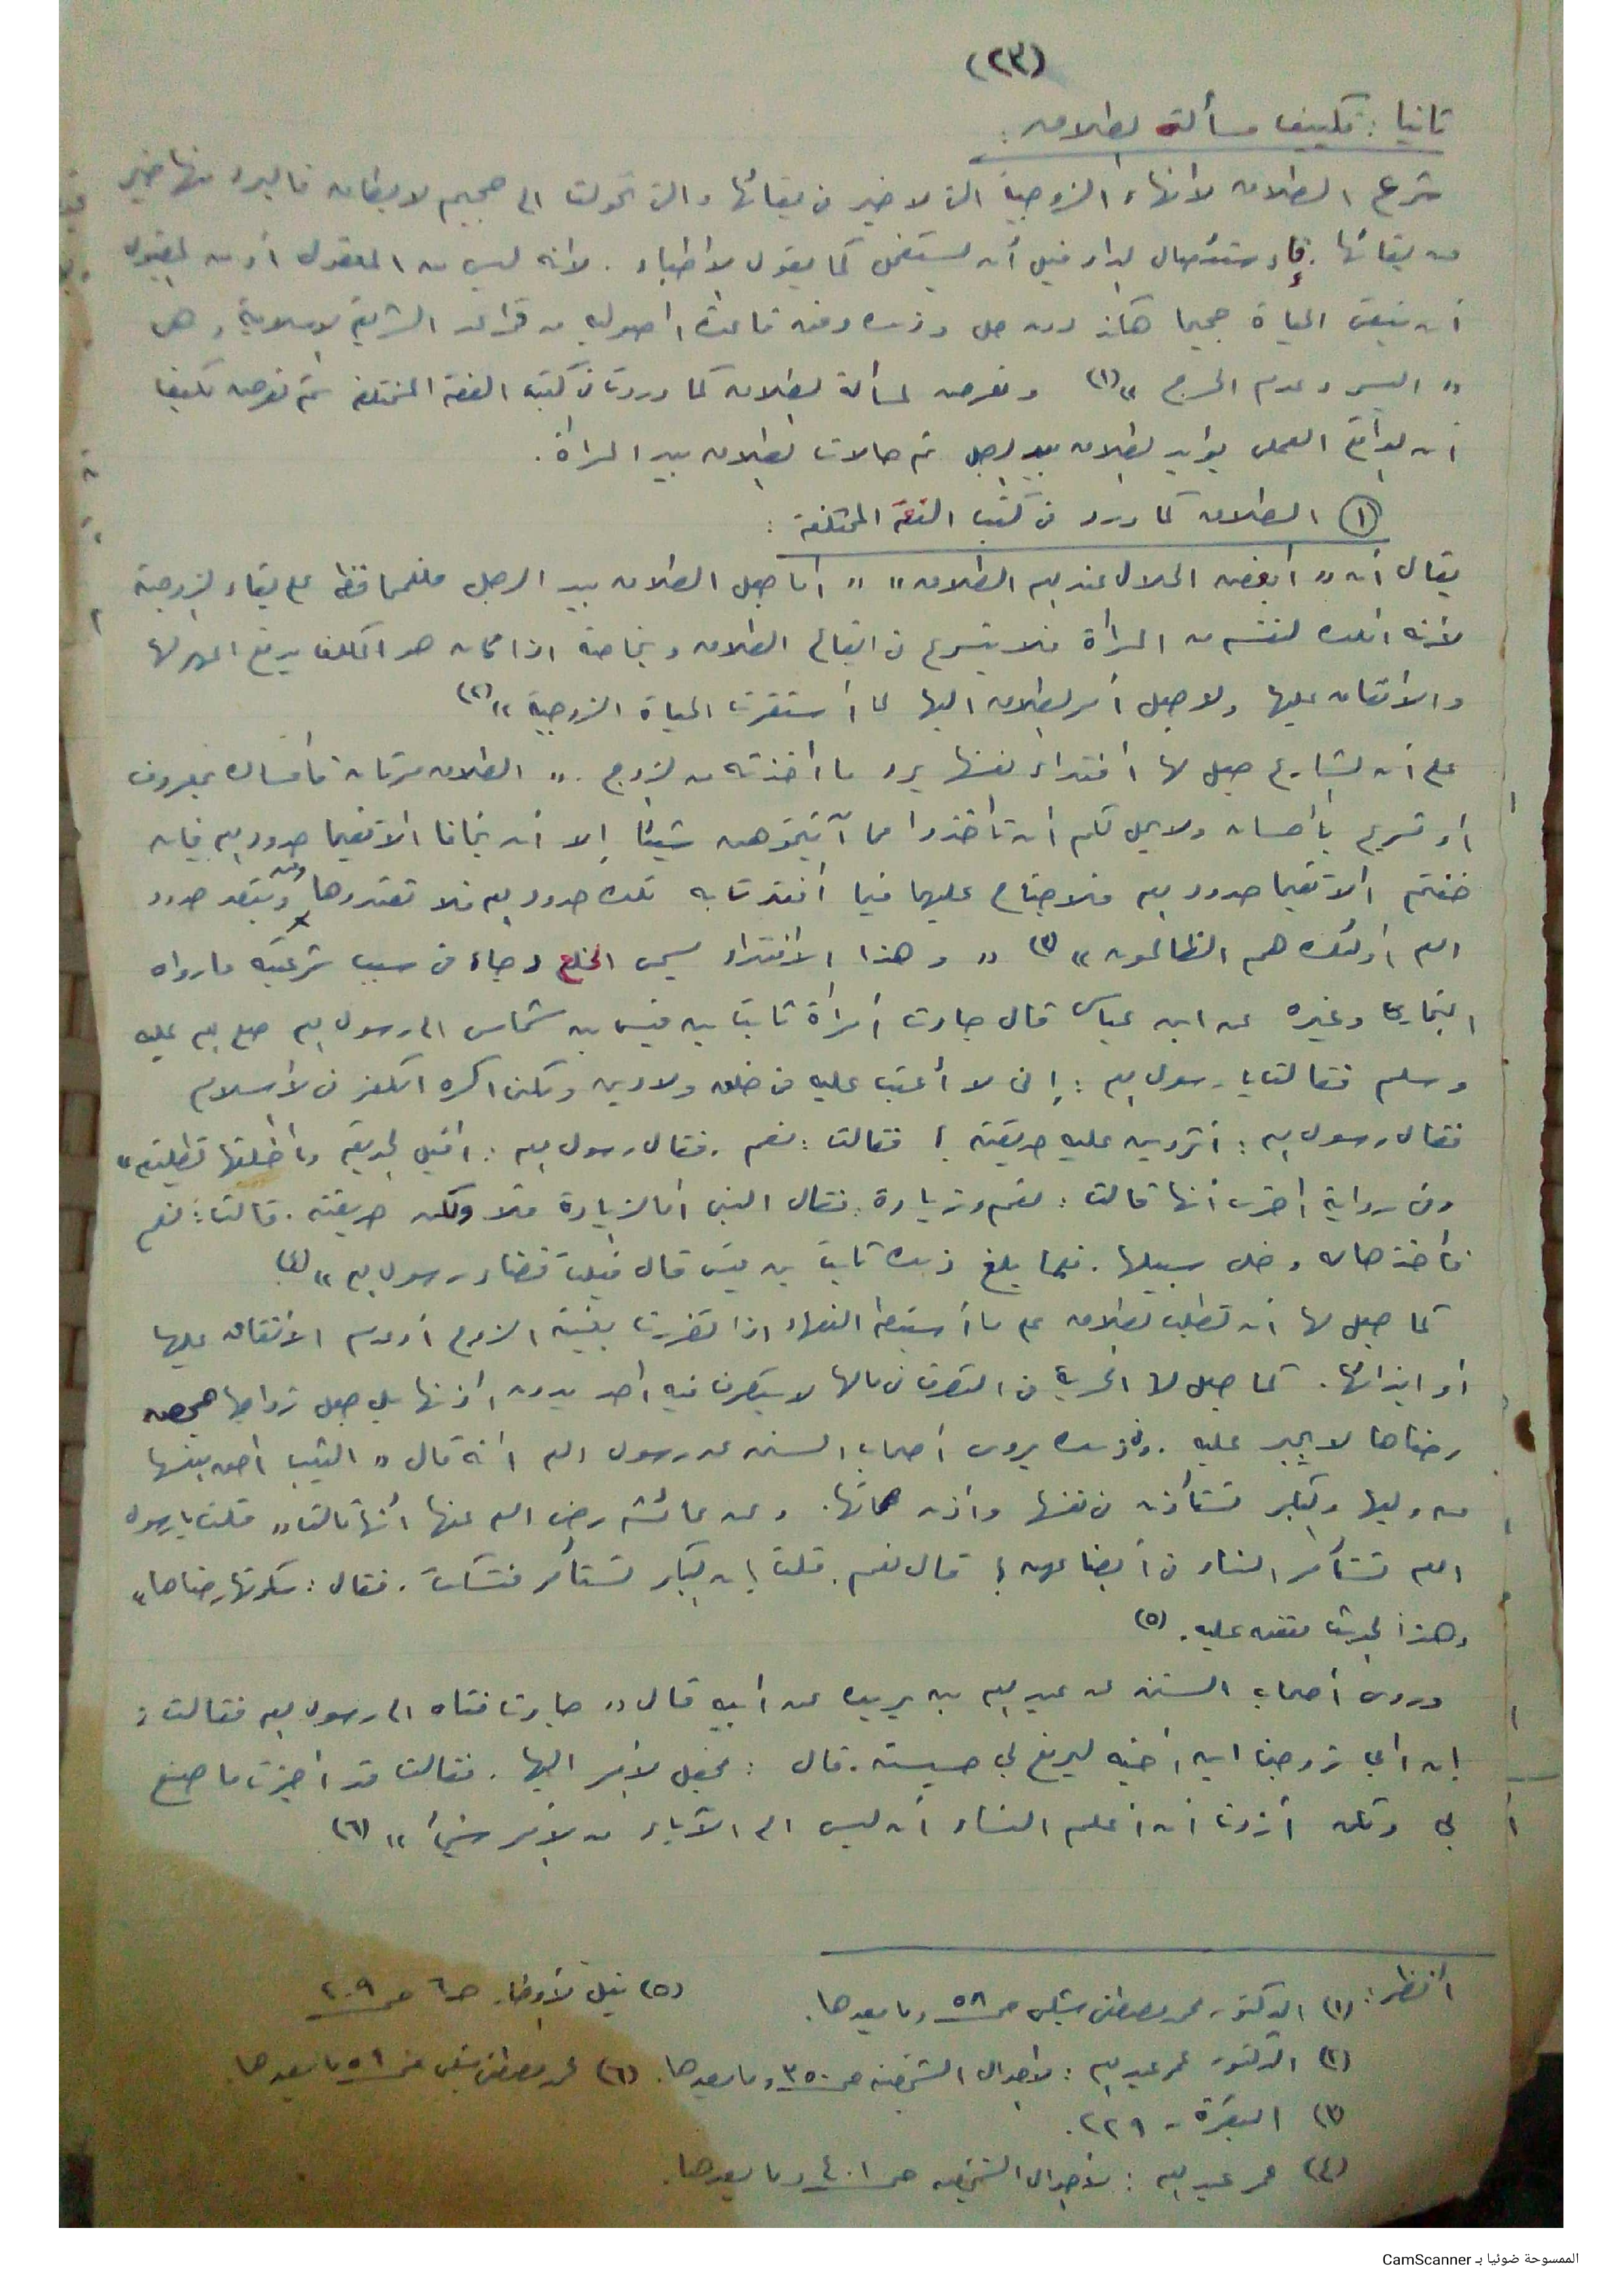 (٢٣)
ثانيا : تكييف مسألة الطلاق :
شرع الطلاق لانهاء الزوجية التى لا خير فى بقائها والتى تحولت الى جحيم لا يطاق فالبرء منها خير
من بقائها . فإستئصال الداء قبل أن يستفحل كما يقول الاطباء . لانه ليس من المعقول أو من المقبول
أن تبقى الحياة جحيما هكذا دون حل وذلك وفق قاعدة اصوليه من قواعد الشريعة الاسلامية وهى
« اليسر وعدم الحرج » (١) ونعرض لمسألة الطلاق كما وردت فى كتب الفقه المختلفة ثم نعرض تكييفا
أن الواقع العملى يؤيد الطلاق بيد الرجل ثم حالات الطلاق بيد المرأة .
(١) الطلاق كما ورد فى كتب الفقه المختلفة :
يقال أن « أبغض الحلال عند الله الطلاق » « انما جعل الطلاق بيد الرجل فللمحافظة على بقاء الزوجية
لأنه املك لنفسه من المرأة فلا يتسرع فى ايقاع الطلاق وبخاصة اذا كان هو المكلف بدفع المهر لها
والانفاق عليها ولو جعل أمر الطلاق اليها لما أستقرت الحياة الزوجية » (٢)
على أن الشارع جعل لها افتداء نفسها برد ما اخذته من الزوج . « الطلاق مرتان فأمساك بمعروف
او تسريح بأحسان ولا يحل لكم ان تأخذوا مما آتيتموهن شيئا إلا أن يخافا الا يقيما حدود الله فإن
خفتم الا يقيما حدود الله فلا جناح عليهما فيما افتدت به تلك حدود الله فلا تعتدوها ومن يتعد حدود
الله أولئك هم الظالمون » (٣) « وهذا الافتداء يسمى الخلع وجاء فى سبب شرعيته ما رواه
البخارى وغيره عن ابن عباس قال جاءت أمرأة ثابت بن قيس بن شماس الى رسول الله صلى الله عليه
وسلم فقالت يا رسول الله : إنى لا أعتب عليه فى خلق ولا دين ولكنى اكره الكفر فى الاسلام
فقال رسول الله : أتردين عليه حديقته ؟ فقالت : نعم . فقال رسول الله : اقبل الحديقة وطلقها تطليقه »
وفى رواية أخرى أنها قالت : نعم وزيادة . فقال النبى أما الزيادة فلا ولكن حديقته . قالت : نعم
فأخذها له وخلى سبيلها . فلما بلغ ذلك ثابت بن قيس قال قبلت قضاء رسول الله » (٤)
كما جعل لها أن تطلب الطلاق على ما أستنبطه الفقهاء اذا تضررت بغيبة الزوج أو عدم الانفاق عليها
أو ايذائها . كما جعل لها الحرية فى التصرف فى مالها لا يتصرف فيه احد بدون اذنها بل جعل زواجها بمحض
رضاها لا تجبر عليه . وفى ذلك يروى أصحاب السنن عن رسول الله انه قال « الثيب احق بنفسها
من وليها والبكر تستأذن فى نفسها واذن صماتها . وعن عائشه رضى الله عنها أنها قالت « قلت يا رسول
الله تستأمر النساء فى أبضاعهن ؟ قال نعم . قلت إن البكر تستأمر فتسكت . فقال : سكوتها رضاها »
وهذا الحديث متفق عليه . (٥)
وروى أصحاب السنن عن عبد الله بن بريده عن أبيه قال « جاءت فتاه الى رسول الله فقالت :
إن أبي زوجنى ابن أخيه ليرفع بي خسيسته . قال : فجعل الأمر اليها . فقالت قد أجزت ما صنع
أبي ولكن أردت أن أعلم النساء أن ليس الى الآباء من الأمر شيئا » (٦)
أنظر : (١) الدكتور محمد مصطفى شلبى ص ٥٨ وما بعدها .
(٢) الدكتور عمر عبد الله : الاحوال الشخصيه ص ٣٥٠ وما بعدها .
(٣) البقرة - ٢٢٩ .
(٤) عمر عبد الله : الأحوال الشخصيه ص ٤٠١ وما بعدها .
(٥) نيل الأوطار حـ ٦ ص ٢٠٩
(٦) محمد مصطفى شلبى ص ٥٩ وما بعدها .
الممسوحة ضوئيا بـ CamScanner